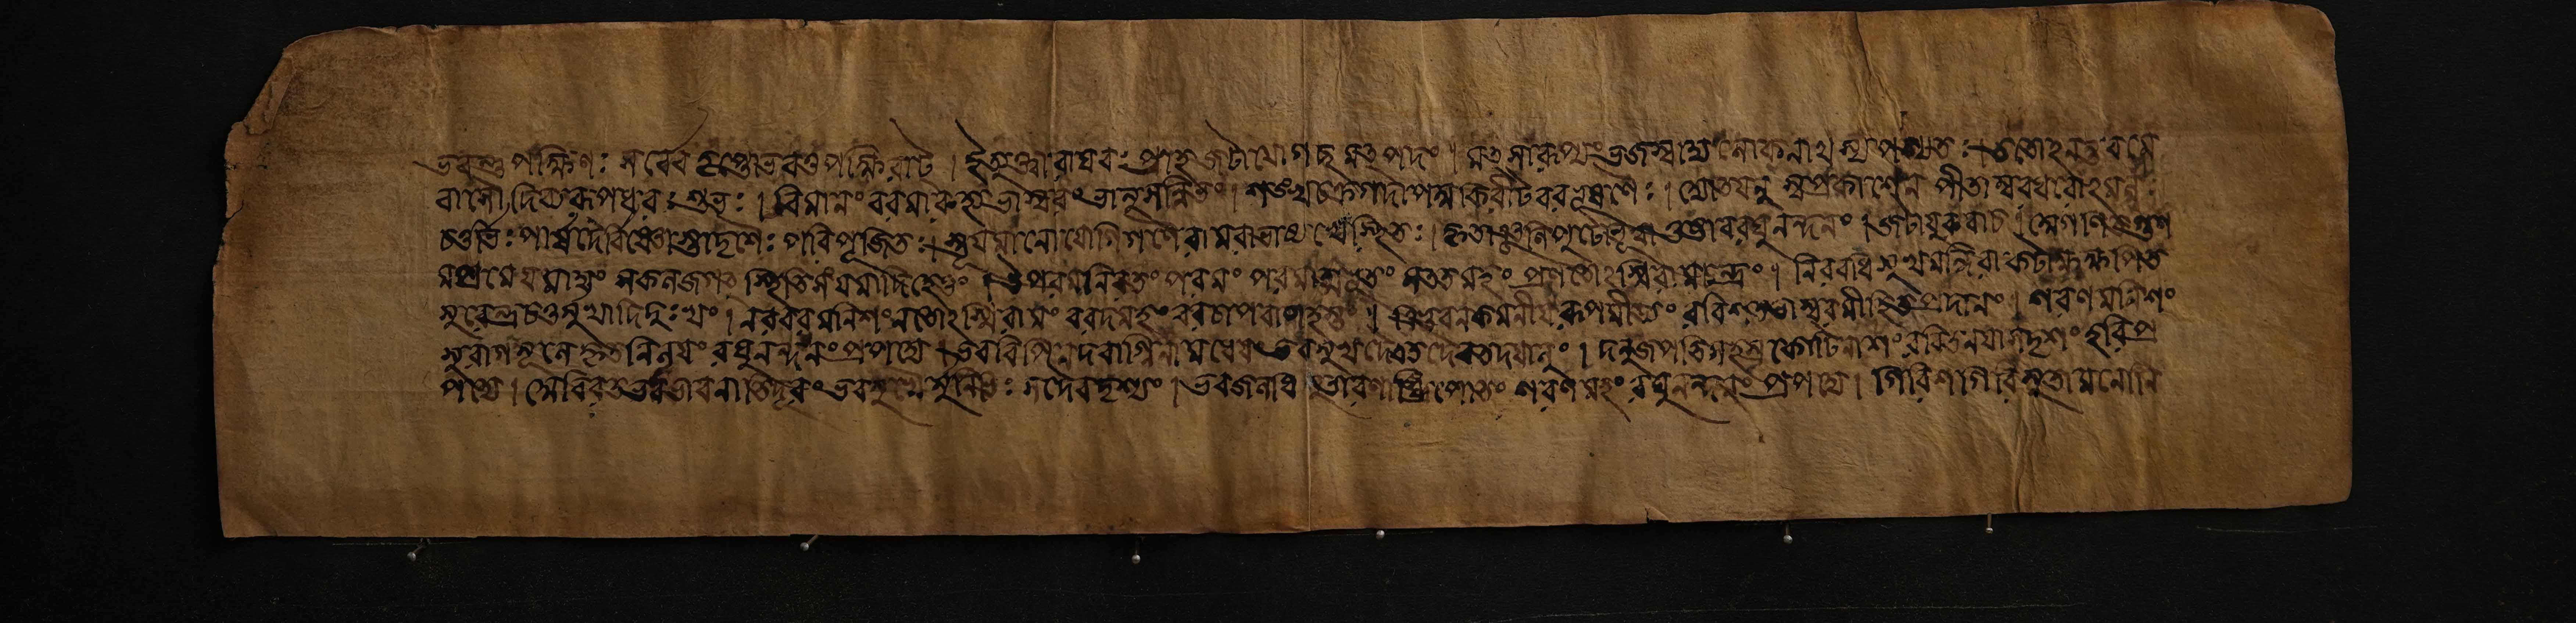 ভবন্তুপক্ষিণঃ সর্ব্বেব তৃপ্তোভবতুপক্ষিরাট । ইত্যুক্ত্বারাঘবঃ প্রাহজটায়োগচ্ছ মতপদং । মতসারূপ্যংভজস্বাদ্য লোকনাথস্যপশ্যতঃ । ততোহনন্তরমে
বাসৌ দিব্যরূপধরঃ শুভঃ । বিমানংবরমারুহ্য ভাস্বরং ভানুসন্নিভং । শঙ্খচক্রগদাপদ্মকিরীটবরভূষণৈঃ । দ্যোতয়ন্ স্বপ্রকাশেন পীতাম্বরধরোহমলঃ
চতুর্ভিঃ পার্ষদৈর্বিষ্ণোস্তাদৃশৈঃ পরিপূজিতঃ । স্তূয়মানোযোগিগণৈরামমাভাষ্য সংস্থিতঃ । কৃতাঞ্জলিপুটোভূত্বা তুষ্টাবরঘুনন্দনং । জটায়ুরুবাচ । অগণিতগুণ
মপ্রমেয়মাদ্যং সকলজগৎ স্থিতিসংযমাদিহেতুং । উপরমনিরতং পরমং পরমাত্মভূতং সততমহং প্রণতোহস্মিরামচন্দ্রং । নিরবধি সুখমিন্দিরাকটাক্ষক্ষপিত
সুরেন্দ্রচতুর্মুখাদিদুঃখং । নরবরমনিশংনতোহস্মিরামং বরদমহং বরচাপবাণহস্তং । ত্রিভুবনকমনীয়রূপমীড্যং রবিশতভাস্বরমীহিতপ্রদানং । শরণমনিশং
সুরাগমূলে কৃতনিলয়ং রঘুনন্দনংপ্রপদ্যে । ভববিপিনদবাগ্নিনামধেয়ংভবমুখদৈবতদৈবতদয়ালুং । দনুজপতিসহস্রকোটিনাশংরবিতনয়াসদৃশং হরিংপ্র
পদ্যে । অবিরতভবভাবনাতিদূরং ভববিমুখৈর্মুনিভিঃ সদৈবদৃশ্যং । ভবজলধি সুতারণাঙ্ঘ্রিপোতং শরণমহং রঘুনন্দনং প্রপদ্যে । গিরিশগিরিসুতামনোনি